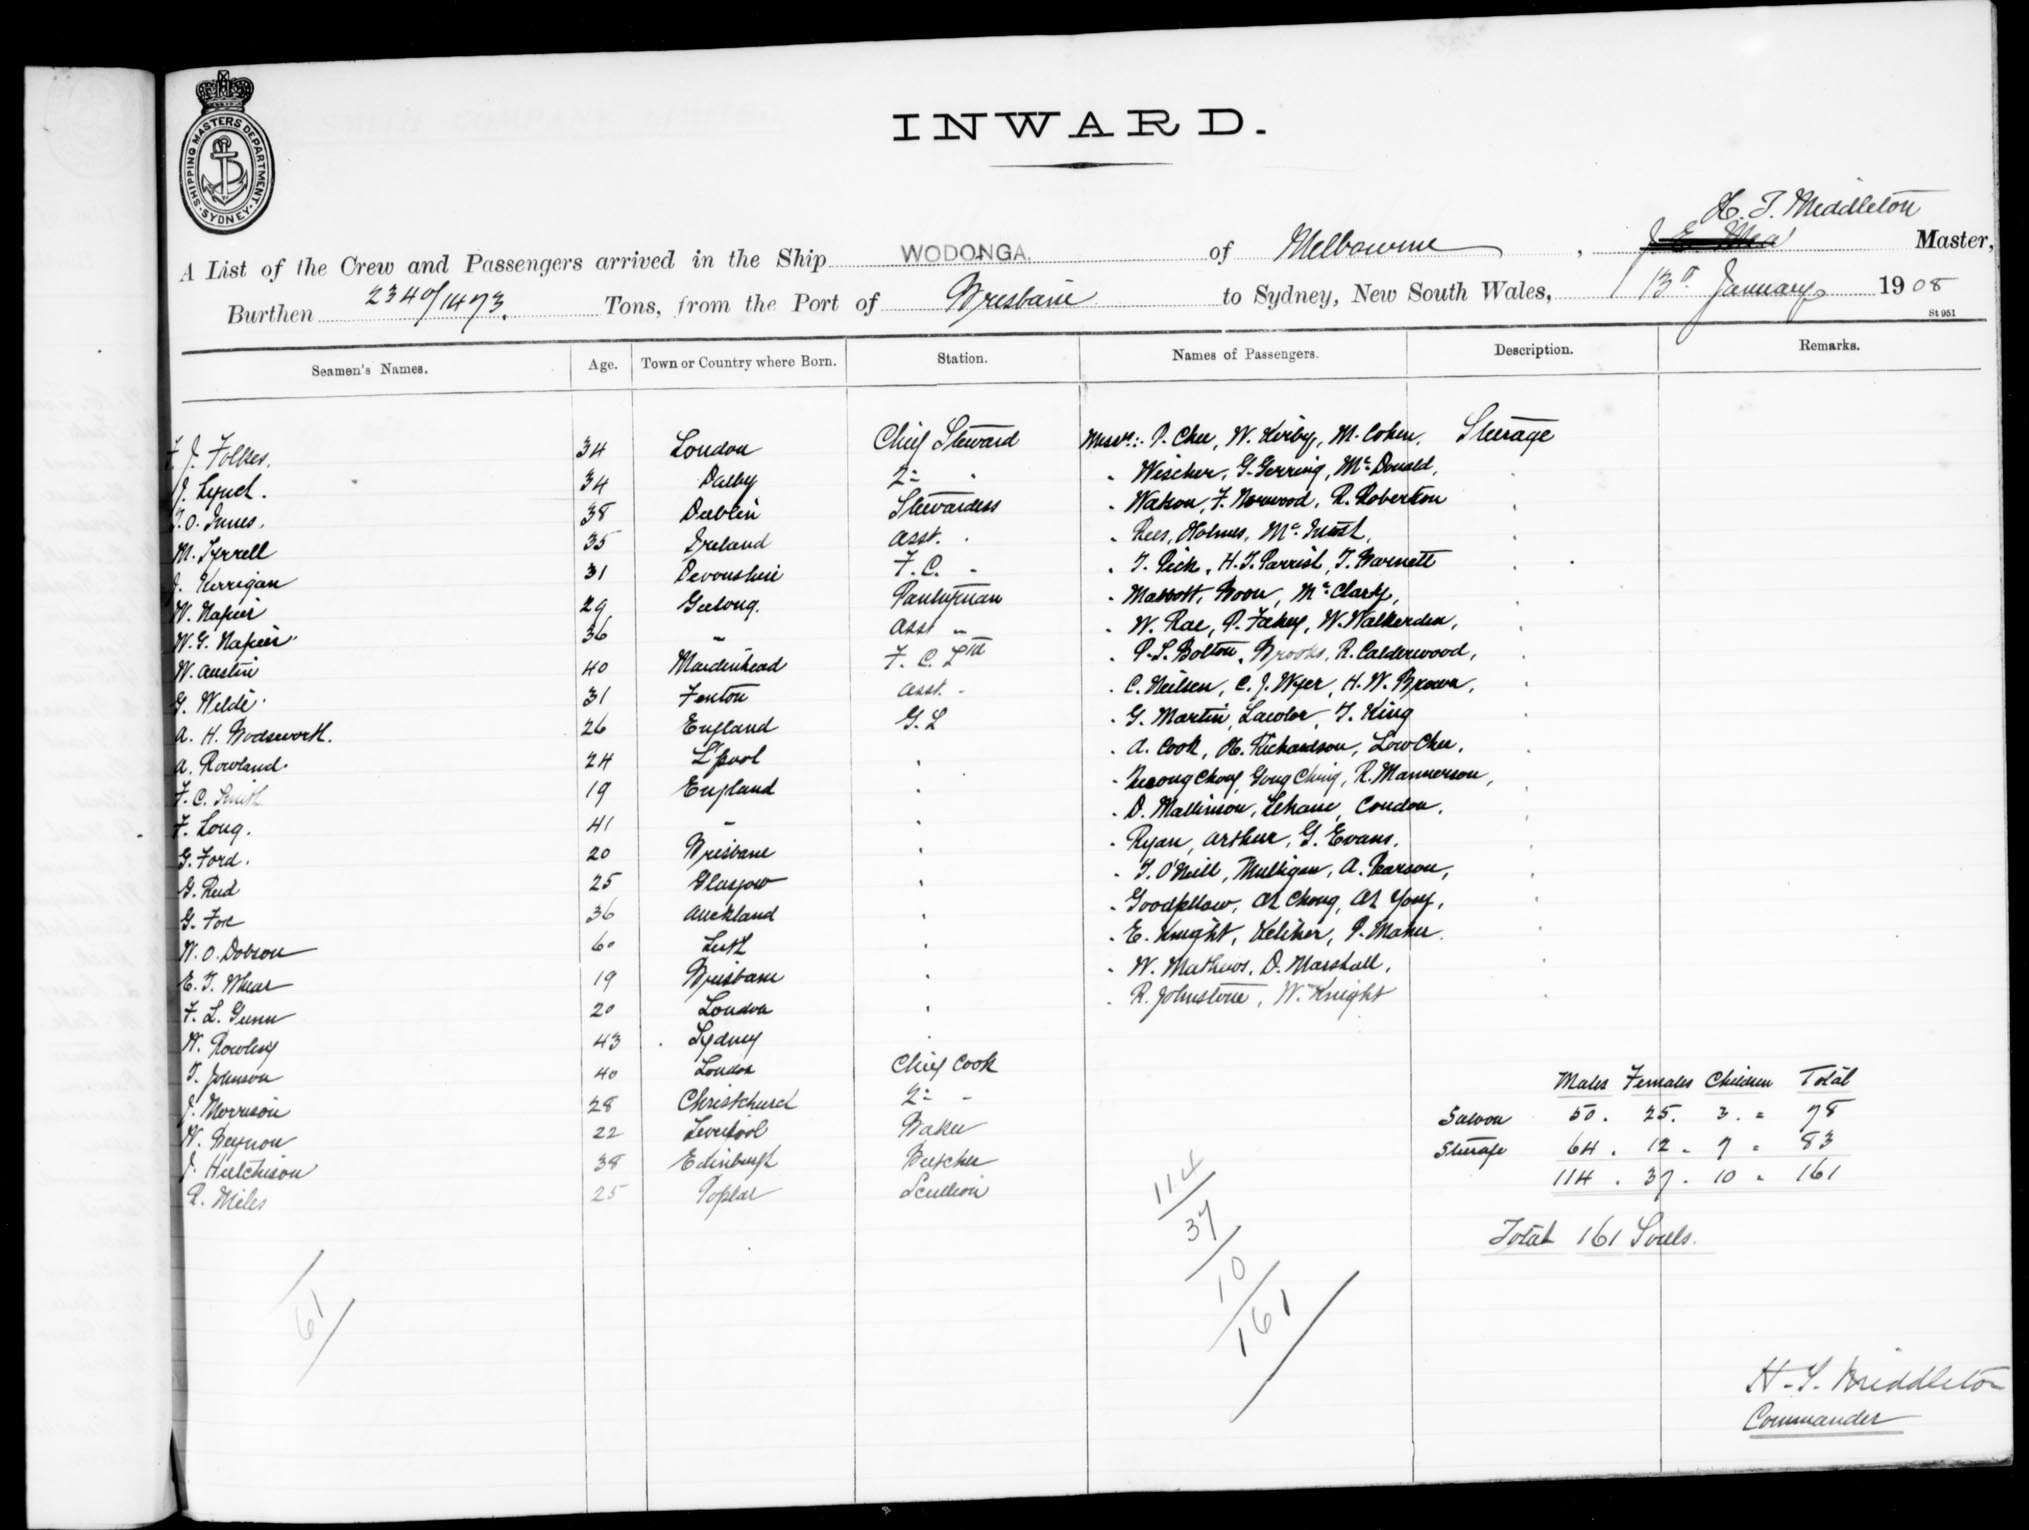 SHIPPING MASTERS DEPARTMENT · SYDNEY ·
INWARD.
H. T. Middleton
A List of the Crew and Passengers arrived in the Ship WODONGA. of Melbourne, Master,
Burthen 2340/1473. Tons, from the Port of Brisbane to Sydney, New South Wales, 13th January 1908
St 951
Seamen's Names. Age. Town or Country where Born. Station. Names of Passengers. Description. Remarks.
F. J. Folkes. 34 London Chief Steward Messrs:- P. Chee, W. Kirby, M. Cohen, Steerage
J. Lynch. 34 Dalby 2nd " " Wischer, G. Gerring, McDonald,
T. O. Innes. 38 Dublin Stewardess " Watson, F. Norwood, R. Robertson
M. Tyrrell 35 Ireland Asst. " " Rees, Holmes,
J. Kerrigan 31 Devonshire F. C. " " T. Pick, H. T. Parrish, T. Barnett
W. Napier 29 Geelong. Pantryman " Boon, McClarty,
W. G. Napier 36 " Asst " " W. Rae, P. Fahey, W. Walkerden,
W. Austin 40 Maidenhead F. C. " P. S. Bolton, Brooks, R. Calderwood,
G. Wilde 31 Fenton Asst. " " C. Neilsen, C. J. Wyer, H. W. Brown,
A. H. Wodsworth. 26 England G. L " G. Martin, Lawlor, T. King
A. Rowland. 24 L'pool " " A. Cook, H. Richardson, Low Chee,
F. C. Smith 19 England " " Gong Ching, R. Mannerson,
F. Long. 41 " " " D. Mallinson, Lehane, Condon,
G. Ford. 20 Brisbane " " Ryan, Arthur, G. Evans,
G. Reid 25 Glasgow " " T. O'Neill, Mulligan, A. Pearson,
G. Fox 36 Auckland " " Goodfellow, Ah Chong, Ah Youy,
W. O. Dobson 60 Leith " " E. Knight, Keliher, P. Maher.
E. T. Whear 19 Brisbane " " W. Mathews, D. Marshall,
F. L. Gunn 20 London " " R. Johnstone, W. Knight
W. Rowling 43 Sydney "
T. Johnson 40 London Chief Cook
J. Morrison 28 Christchurch 2nd "
W. Beynon 22 Liverpool Baker
J. Hutchison 38 Edinburgh Butcher
R. Miles 25 Poplar Scullion
Males Females Children Total
Saloon 50 . 25. 3. = 78
Steerage 64 . 12 . 7 = 83
114 . 37 . 10 = 161
Total 161 Souls.
61
114
37
10
161
H. T. Middleton
Commander